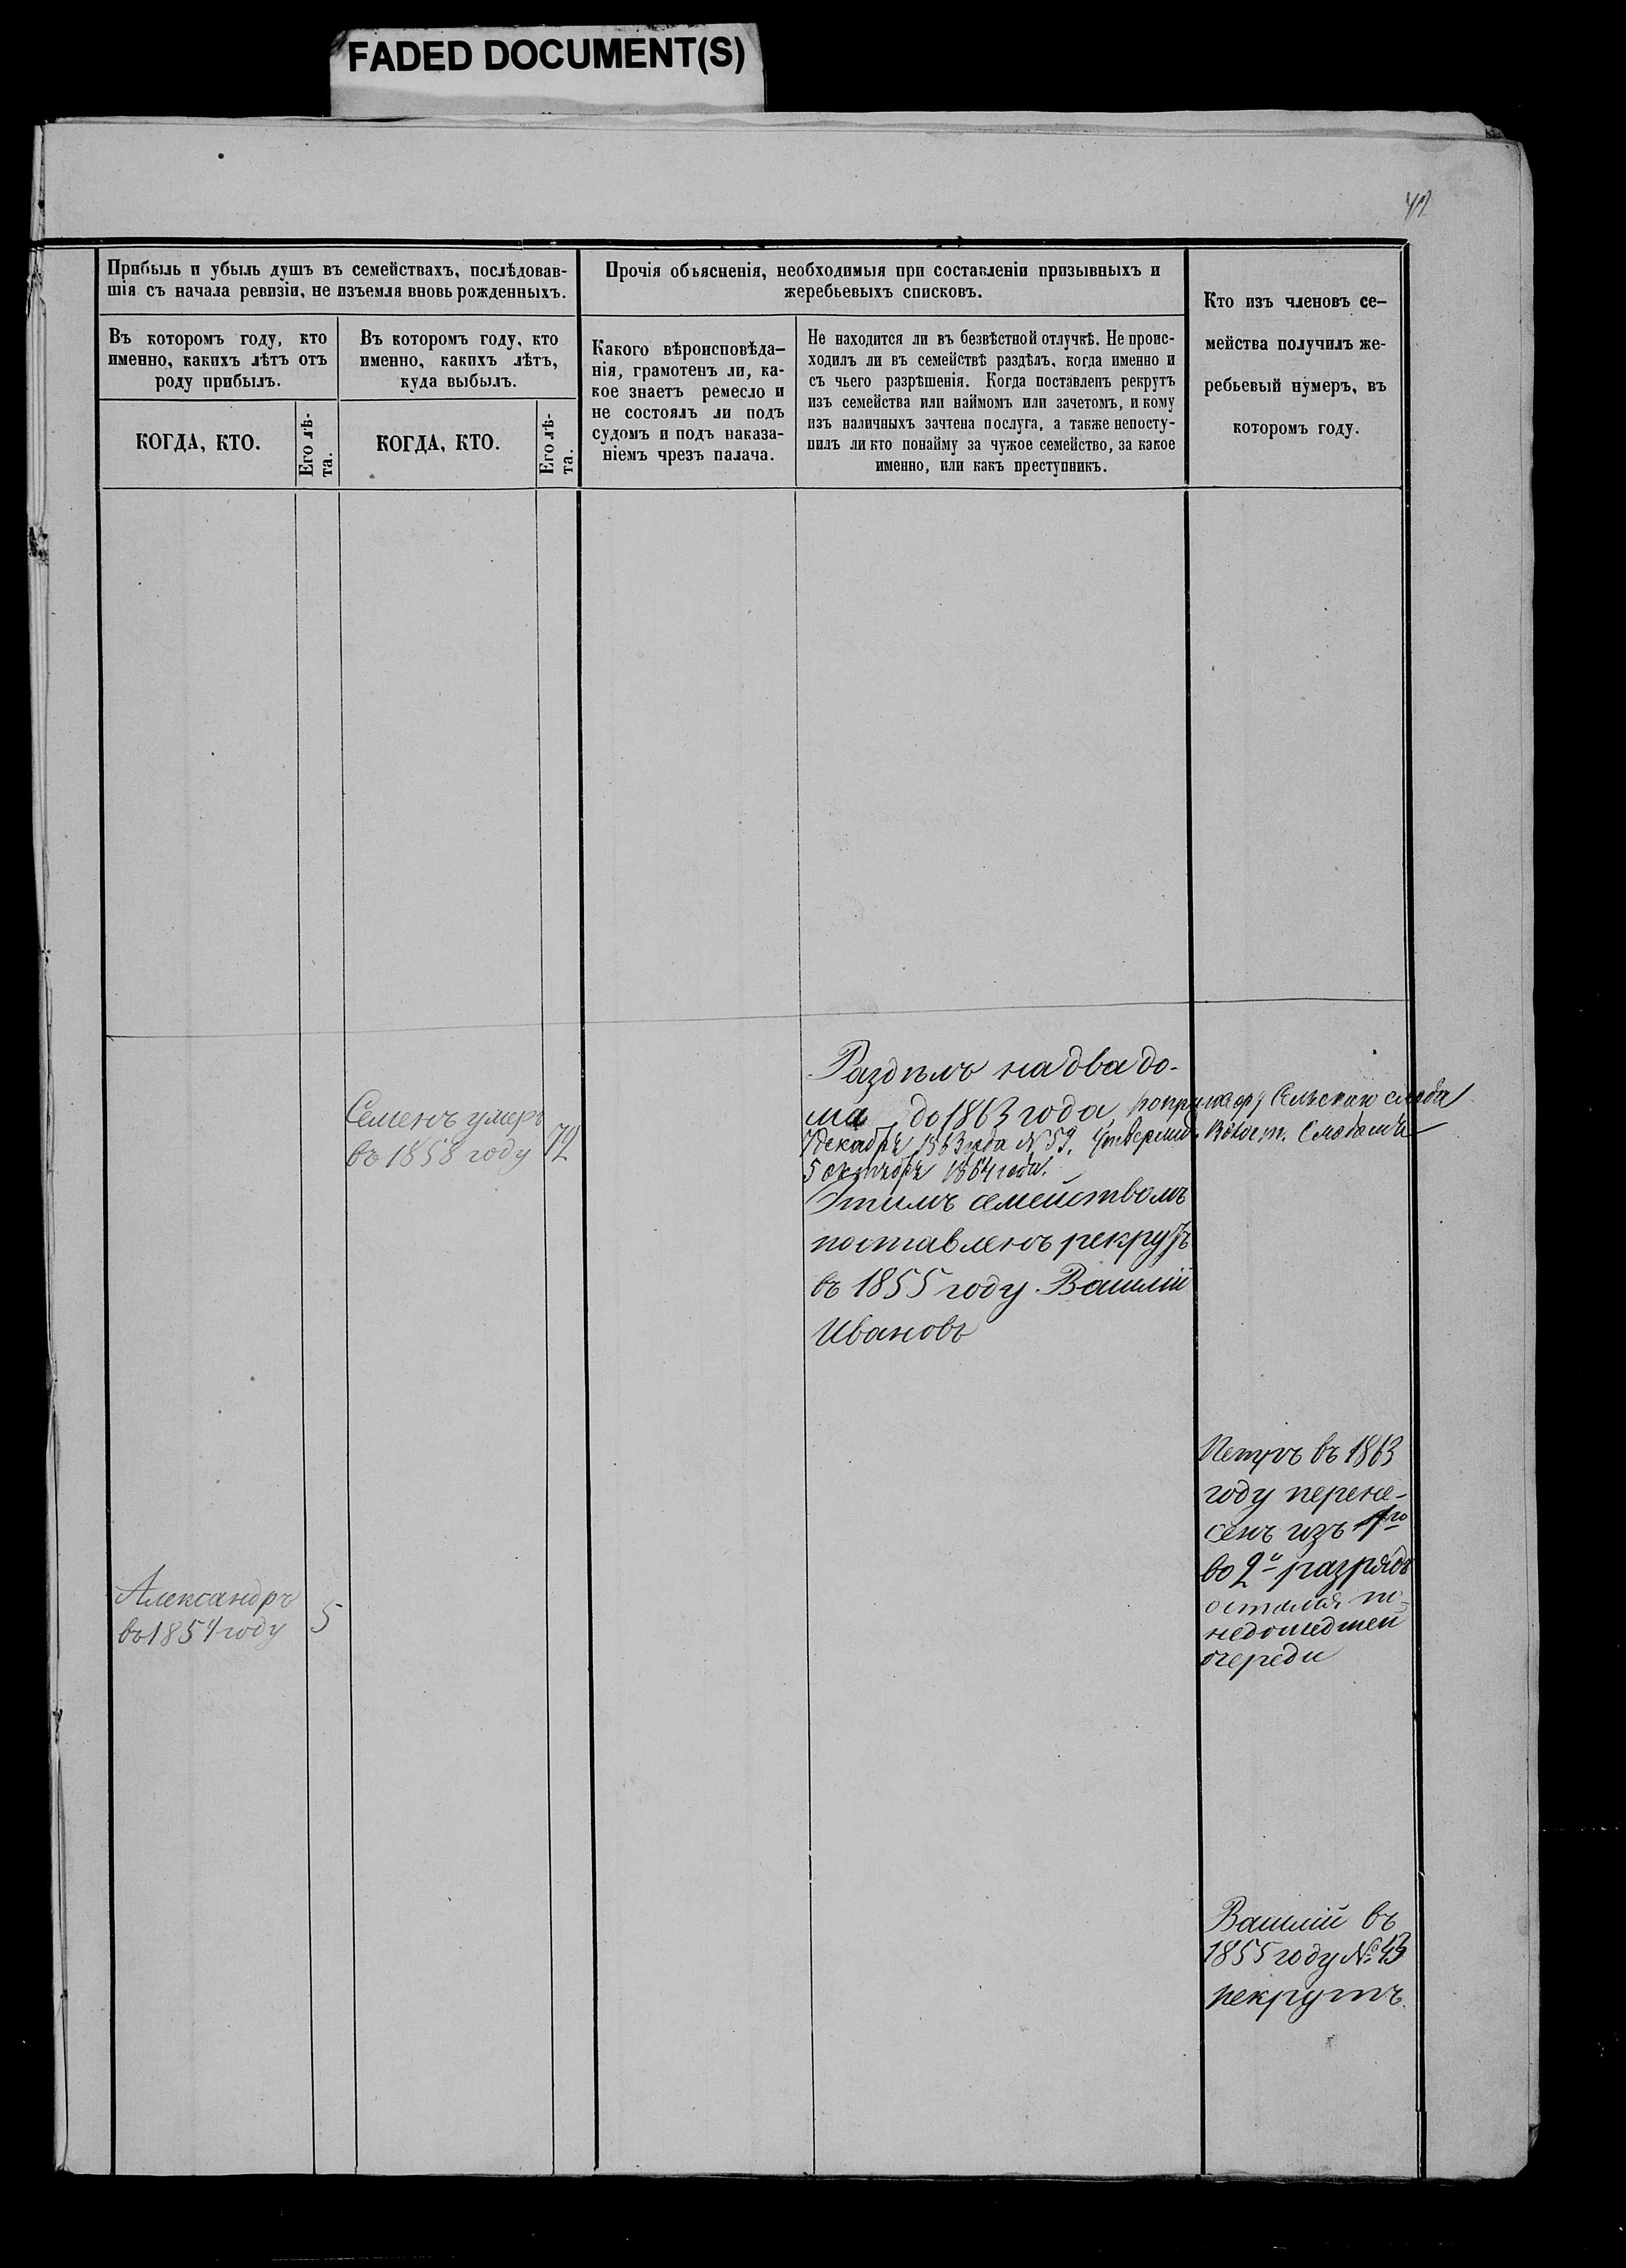 FADED DOCUMENT(S)
Прибыль и убыль душъ въ семействахъ, послѣдовав-
шія съ начала ревизіи, не изъемля вновь рожденныхъ.
Въ котором году, кто
именно, какихъ лѣтъ отъ
роду прибылъ.
КОГДА, КТО.
Его лѣ-
та.
Въ котором году, кто
именно, какихъ лѣтъ,
куда выбылъ.
КОГДА, КТО.
Его лѣ-
та.
Прочія обьясненія, необходимыя при составленіи призывныхъ и
жеребьевыхъ списковъ.
Какого вѣроисповѣда-
нія, грамотенъ ли, ка-
кое знаетъ ремесло и
не состоялъ ли подъ
судомъ и подъ наказа-
ніемъ чрезъ палача.
Не находится ли въ безвѣстной отлучкѣ. Не проис-
ходилъ ли въ семействѣ раздѣлъ, когда именно и
съ чьего разрѣшенія. Когда поставленъ рекрутъ
изъ семейства или наймомъ или зачетомъ, и кому
изъ наличныхъ зачтена послуга, а также непосту-
пилъ ли кто понайму за чужое семейство, за какое
именно, или какъ преступникъ.
Кто изъ членовъ се-
мейства получилъ же-
ребьевый нумеръ, въ
которомъ году.
Семенъ умеръ
въ 1858 году
72
Раздѣлъ на два до-
ма до 1863 года, по приговору Сельскаго схода
7 декабря 1863 года № 59. Утвержд. Волост. Сходомъ
5 октября 1864 года.
Этимъ семействомъ
поставленъ рекрутъ
въ 1855 году Василій
Ивановъ
Петръ въ 1863
году перене-
сенъ изъ 1го
во 2й разрядъ
остался по
недошедшей
очереди
Александръ
въ 1854 году
5
Василій въ
1855 году № 43
рекрутъ.